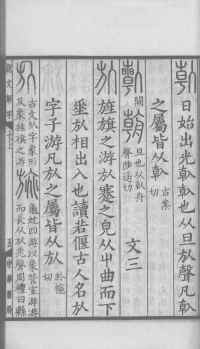 倝日始出光倝倝也从旦㫃聲凡倝
之屬皆从倝 古案切
闕 旦也从倝舟聲陟遥切 文三
㫃旌旗之游㫃蹇之皃从屮曲而下
垂㫃相出入也讀若偃古人名㫃
字子游凡㫃之屬皆从㫃 於幰切
古文㫃字象形
及象旌旗之游
旐龜蛇四游以象營室游游
而長从㫃兆聲周禮曰縣